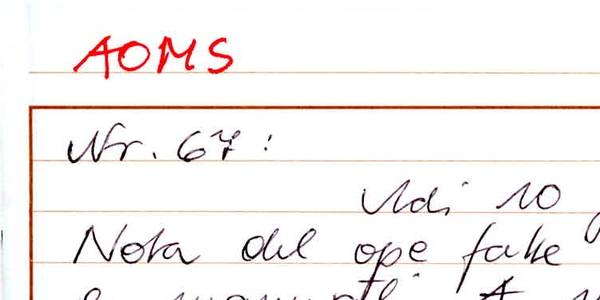 AOMS
Nr. 67:
Adi 10
Nota del ope fatte